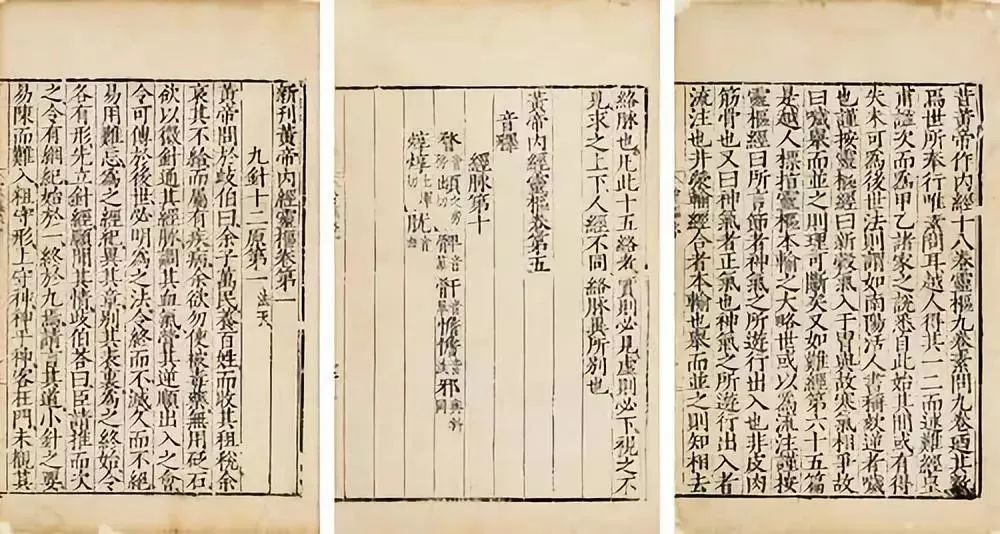 昔黃帝作內經十八卷靈樞九卷素問九卷廼其數
焉世所奉行唯素問耳越人得其一二而述難經皇
甫謐次而為甲乙諸家之說悉自此始其間或有得
失未可為後世法則謂如南陽活人書稱欬逆者噦
也謹按靈樞經曰新穀氣入于胃與故寒氣相爭故
曰噦舉而並之則理可斷矣又如難經第六十五篇
是越人標指靈樞本輸之大略世或以為流注謹按
靈樞經曰所言節者神氣之所遊行出入也非皮肉
筋骨也又曰神氣者正氣也神氣之所遊行出入者
流注也井滎輸經合者本輸也舉而並之則知相去
絡脉也凡此十五絡者實則必見虛則必下視之不
見求之上下人經不同絡脉異所別也
黃帝內經靈樞卷第五
音釋
經脉第十
新刊黃帝內經靈樞卷第一
九針十二原第一 法天
黃帝問於歧伯曰余子萬民養百姓而收其租稅余
哀其不給而屬有疾病余欲勿使被毒藥無用砭石
欲以微針通其經脉調其血氣營其逆順出入之會
令可傳於後世必明為之法令終而不滅久而不絕
易用難忘為之經紀異其章別其表裏為之終始令
各有形先立針經願聞其情歧伯荅曰臣請推而次
之令有綱紀始於一終於九焉請言其道小針之要
易陳而難入粗守形上守神神乎神客在門未覩其